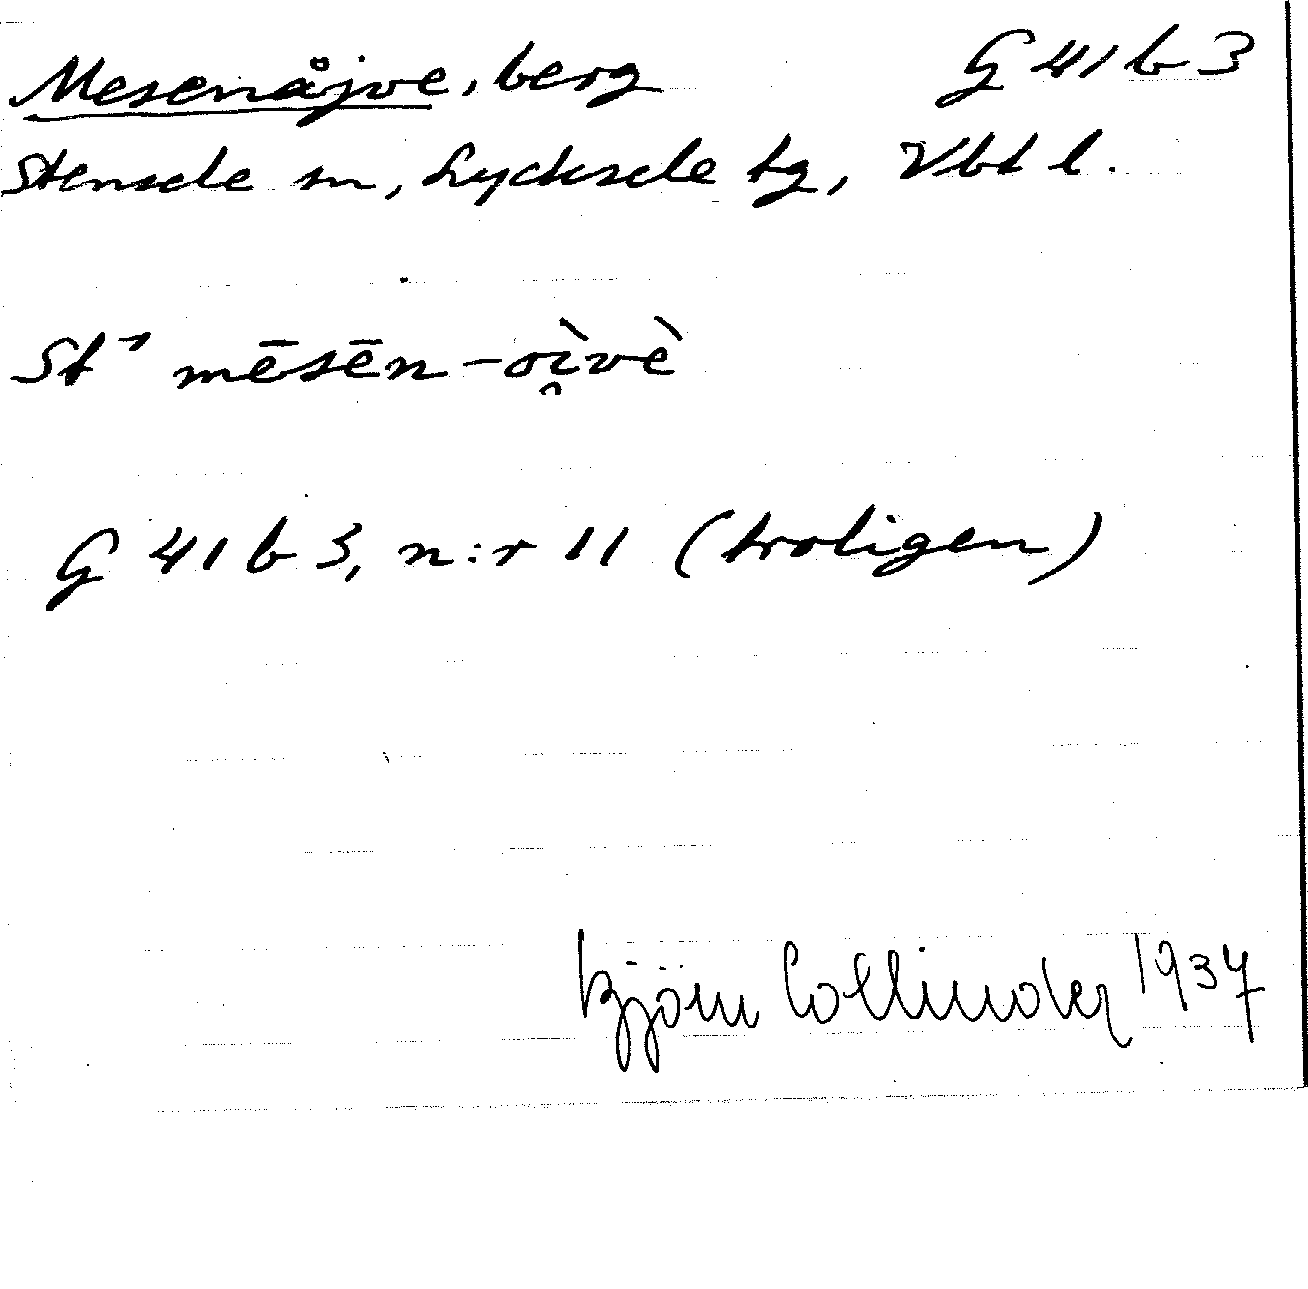 Mesenåjve, berg G 41 b 3
Stensele sn, Lycksele tg, Vbt l.
St⁻¹ mēsēn-oì̯vè
G 41 b 3, n:r 11 (troligen)
Björn Collinder 1937